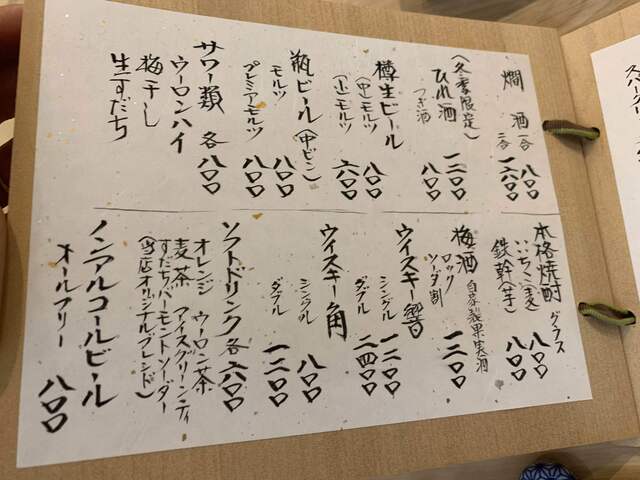 燗酒 一合 八〇〇
二合 一六〇〇
(冬季限定)
ひれ酒 一二〇〇
つぎ酒 八〇〇
樽生ビール
(中)モルツ 八〇〇
(小)モルツ 六〇〇
瓶ビール(中ビン)
モルツ 八〇〇
プレミアモルツ 八〇〇
サワー類 各八〇〇
ウーロンハイ
梅干し
生すだち
本格焼酎 グラス
いいちこ(麦) 八〇〇
鉄幹(芋) 八〇〇
梅酒 自家製果実酒
ロック
ソーダ割 一三〇〇
ウイスキー響
シングル 一二〇〇
ダブル 二四〇〇
ウイスキー角
シングル 八〇〇
ダブル 一二〇〇
ソフトドリンク 各六〇〇
オレンジ ウーロン茶
麦茶 アイスグリーンティ
すだちバーモントソーダー
(当店オリジナルブレンド)
ノンアルコールビール
オールフリー 八〇〇
スパークリ